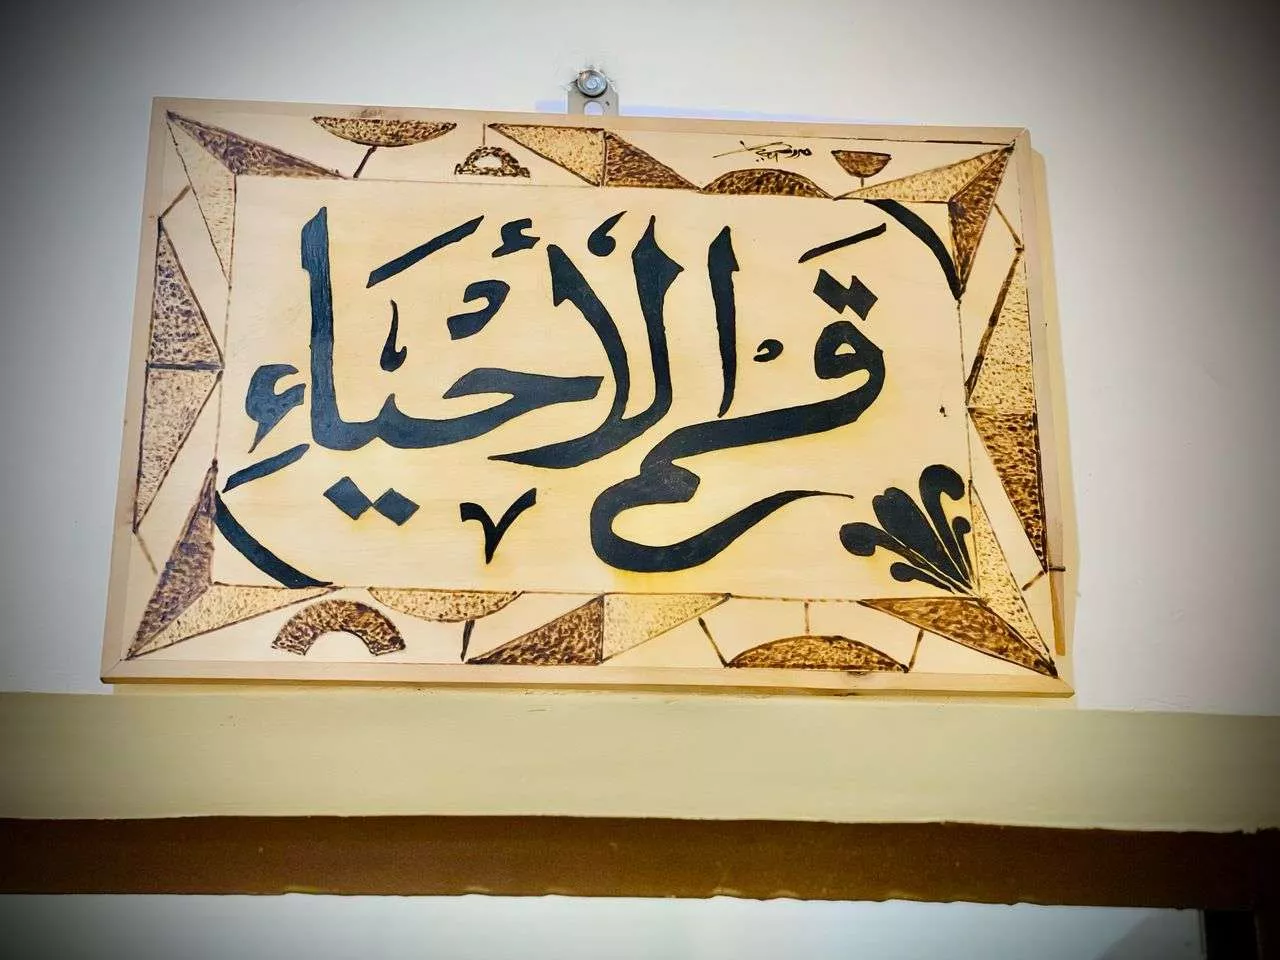 قسم الأحياء